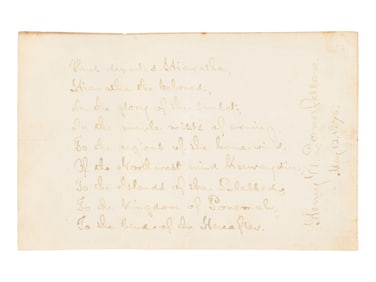 Thus departed Hiawatha,
Hiawatha the beloved,
In the glory of the sunset,
In the purple mists of evening,
To the regions of the home-wind,
Of the Northwest wind Keewaydin,
To the Islands of the Blessed,
To the Kingdom of Ponemah,
To the land of the Hereafter.
Henry W. Longfellow
May 13. 1876.